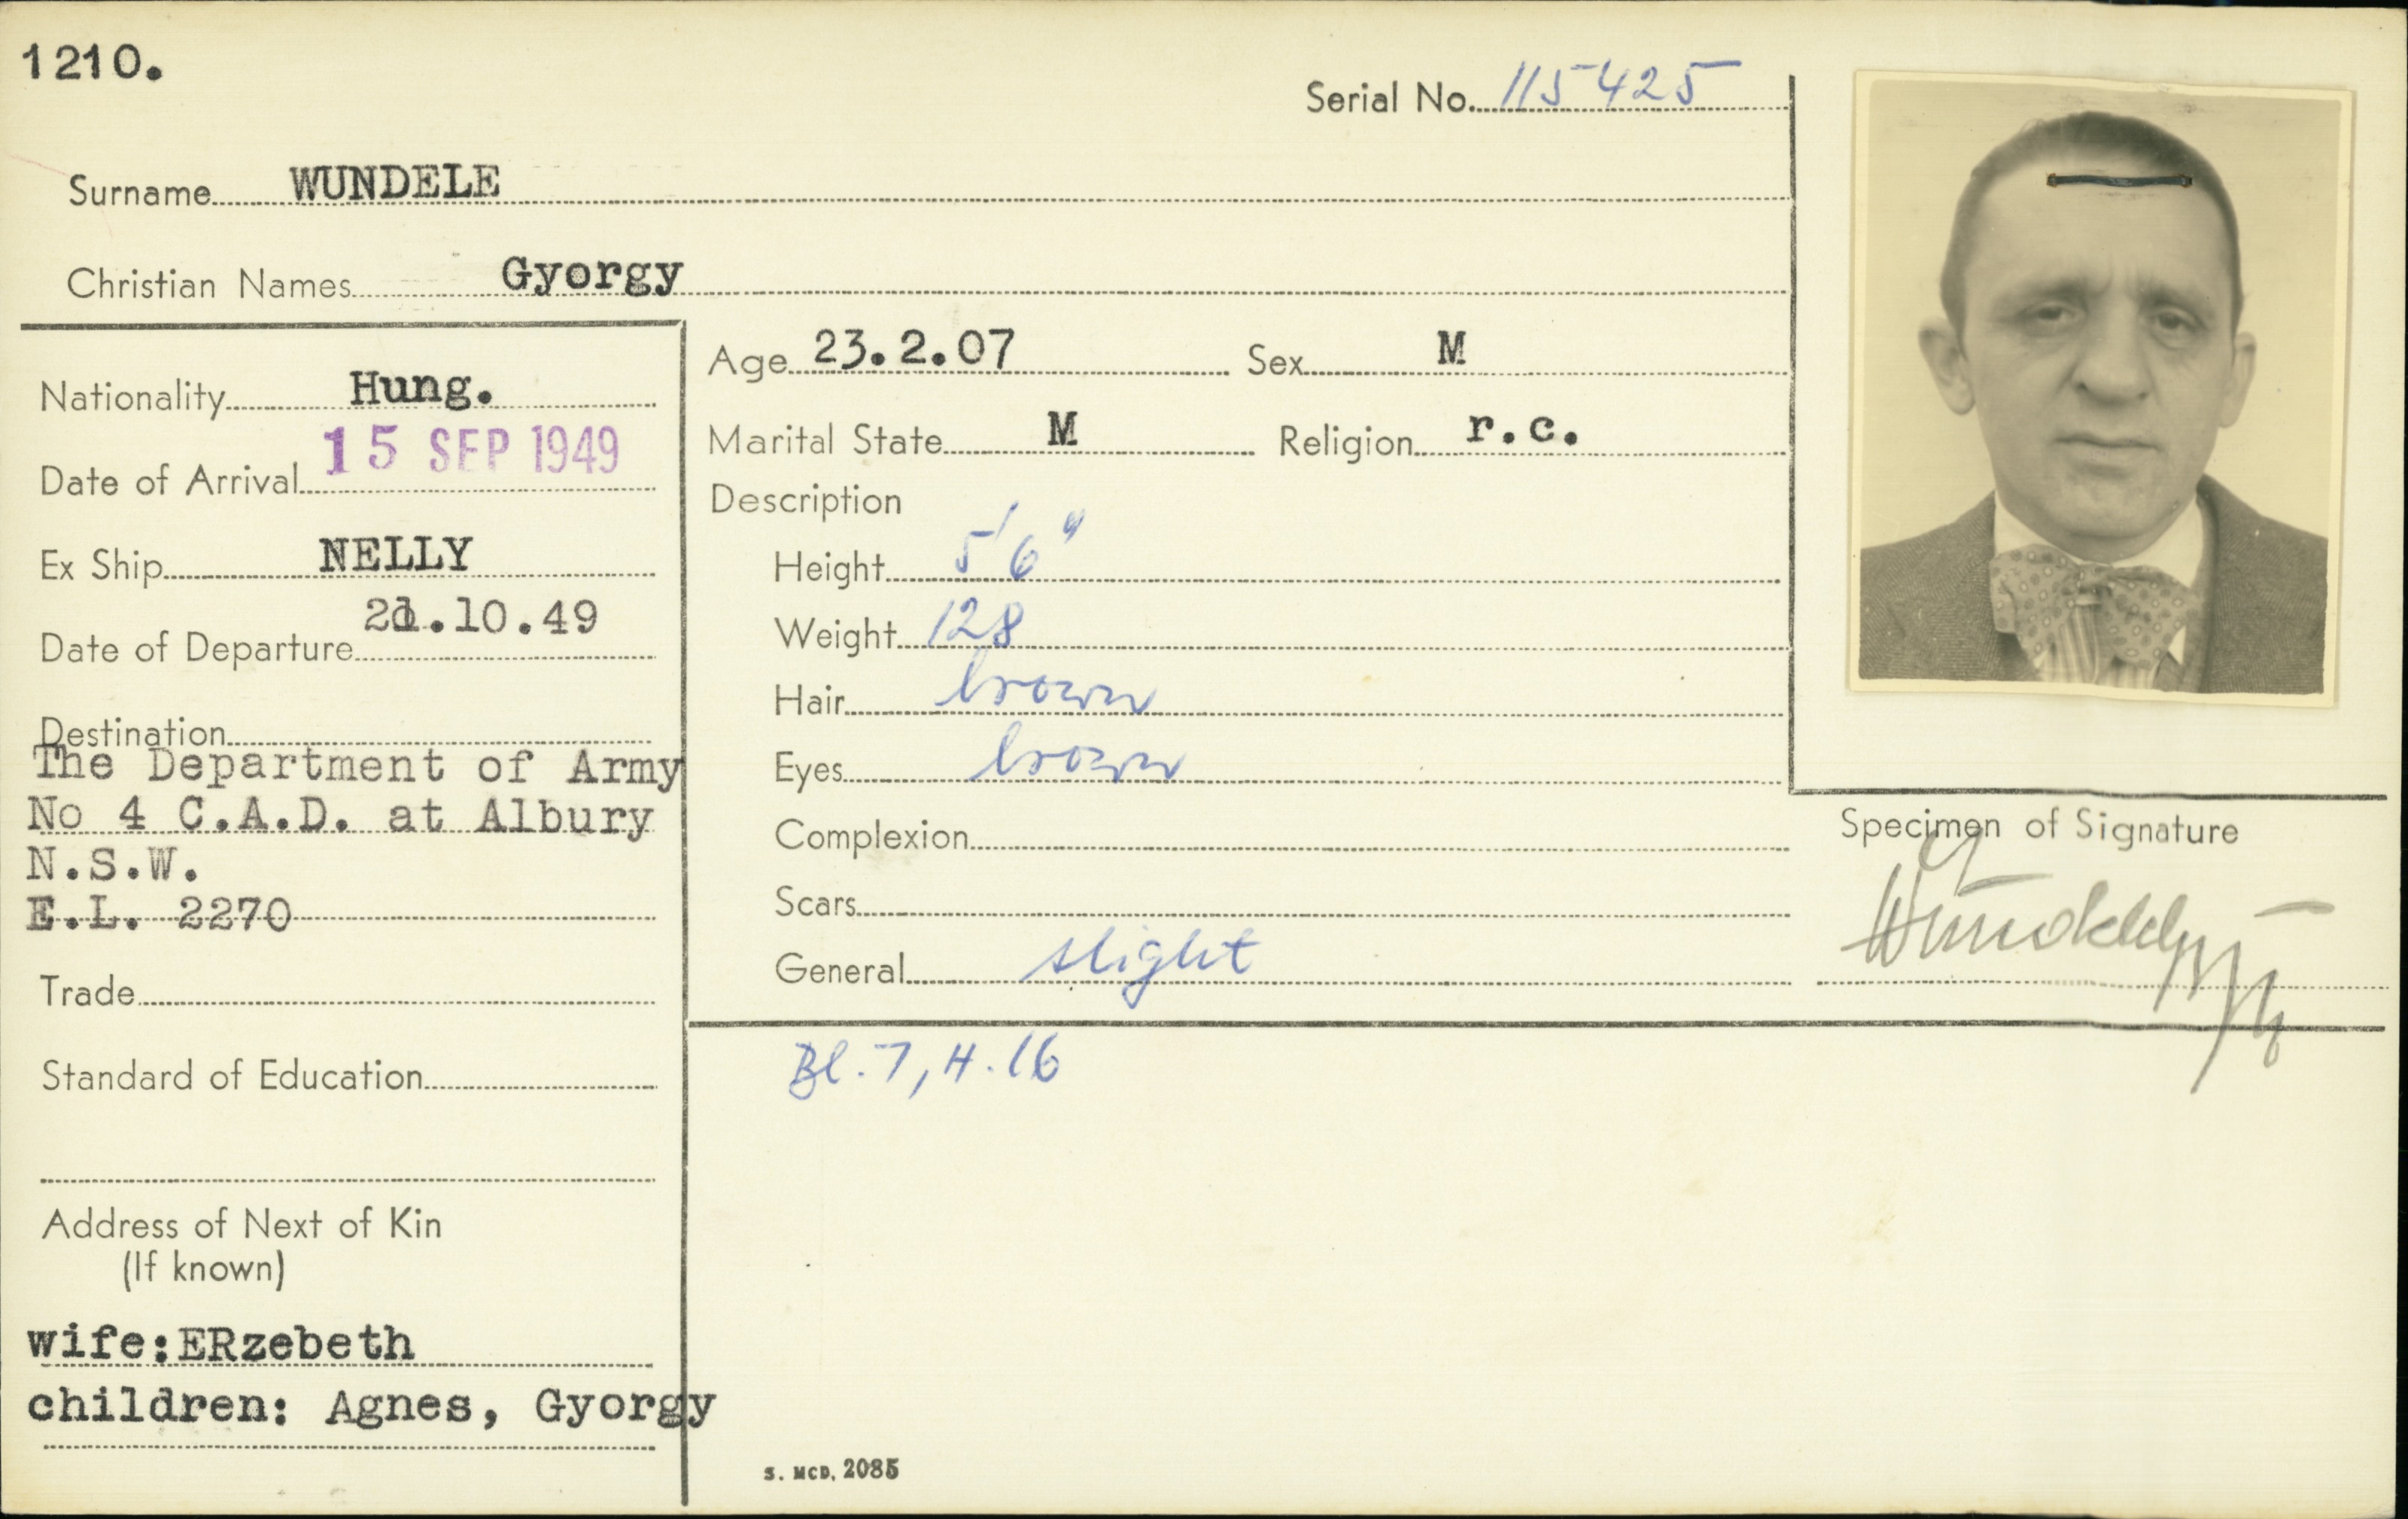 1210.
Serial No. 115425
Surname WUNDELE
Christian Names Gyorgy
Nationality Hung.
Date of Arrival 15 SEP 1949
Ex Ship NELLY
Date of Departure 21.10.49
Destination
The Department of Army
No 4 C.A.D. at Albury
N.S.W.
E.L. 2270
Trade
Standard of Education
Address of Next of Kin
(If known)
wife:ERzebeth
children: Agnes, Gyorgy
Age 23.2.07 Sex M
Marital State M Religion r.c.
Description
Height 5'6"
Weight 128
Hair brown
Eyes brown
Complexion
Scars
General slight
Bl. 7, H. 16
S. MCD. 2085
Specimen of Signature